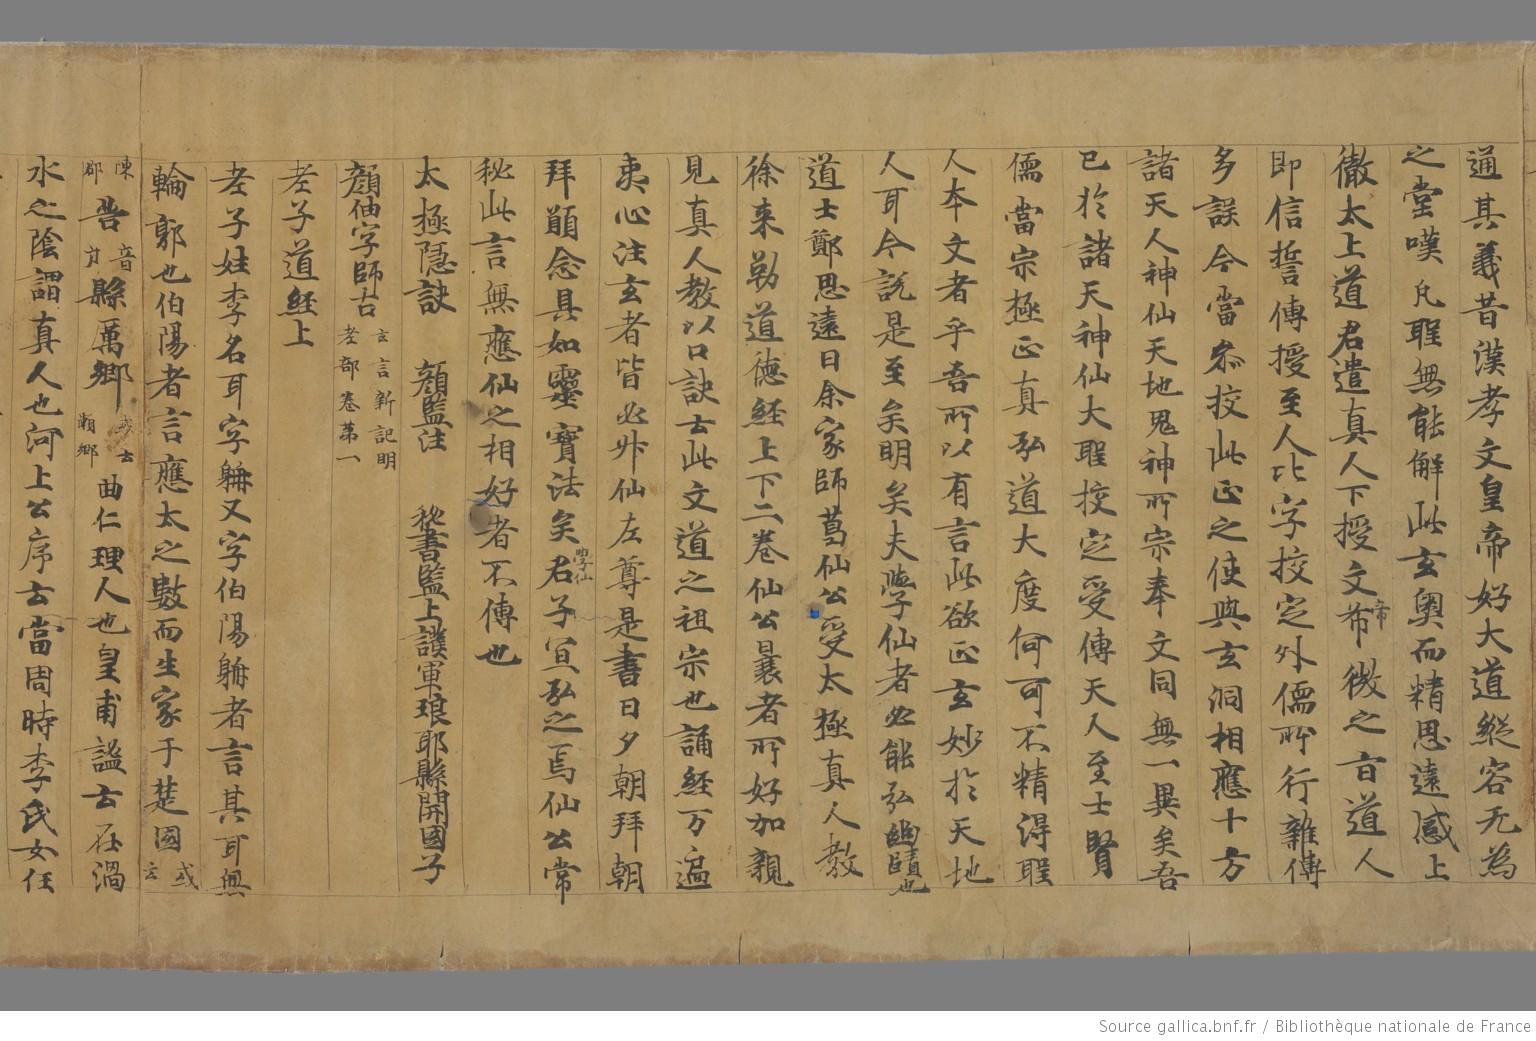 通其義昔漢孝文皇帝好大道縱容无為
之堂嘆凡聖無能解此玄奧而精思遠感上
徹太上道君遣真人下授文希帝微之旨道人
即信誓傳授至人比字校定外儒所行雜傳
多誤今當參校此正之使與玄洞相應十方
諸天人神仙天地鬼神所宗奉文同無一異矣吾
已於諸天神仙大聖校定受傳天人至士賢
儒當宗極正真弘道大度何可不精得聖
人本文者乎吾所以有言此欲正玄妙於天地
人耳今說是至矣明矣夫學仙者必能弘幽賾也
道士鄭思遠曰余家師葛仙公受太極真人教
徐来勒道德經上下二卷仙公曩者所好加親
見真人教以口訣云此文道之祖宗也誦經万遍
夷心注玄者皆必升仙左尊是書日夕朝拜朝
拜願念具如靈寶法矣學仙君子宜弘之焉仙公常
秘此言無應仙之相好者不傳也
太極隱訣 顏監注 秘書監上護軍琅耶縣開國子
顏伷字師古 玄言新記明老部卷第一
老子道經上
老子姓李名耳字䏁又字伯陽䏁者言其耳無
輪郭也伯陽者言應太之數而生家于楚國或云
陳郡苦音県縣厲鄉或云瀬鄉曲仁理人也皇甫謐云在渦
水之陰謂真人也河上公序云當周時李氏女任
Source gallica.bnf.fr / Bibliothèque nationale de France